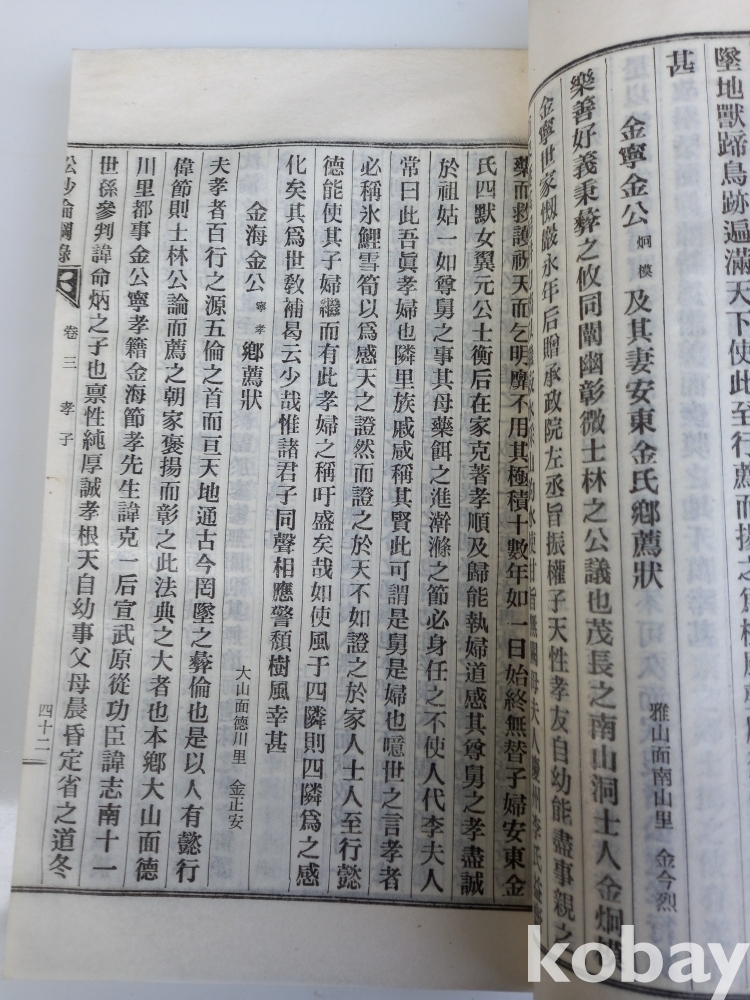 墜地獸蹄鳥跡遍滿天下使此至行薦而揚之
甚
金寧金公 炯模 及其妻安東金氏鄕薦狀
雅山面南山里 金今烈
樂善好義秉彝之攸同闡幽彰微士林之公議也茂長之南山洞士人金炯模
金寧世家慨嚴永年后贈承政院左丞旨振權子天性孝友自幼能盡事親之
藥而救護祝天而乞明靡不用其極積十數年如一日始終無替子婦安東金
氏四默女翼元公士衡后在家克著孝順及歸能執婦道感其尊舅之孝盡誠
於祖姑一如尊舅之事其母藥餌之進澣滌之節必身任之不使人代李夫人
常曰此吾眞孝婦也隣里族戚咸稱其賢此可謂是舅是婦也噫世之言孝者
必稱氷鯉雪筍以爲感天之證然而證之於天不如證之於家人士人至行懿
德能使其子婦繼而有此孝婦之稱吁盛矣哉如使風于四隣則四隣爲之感
化矣其爲世敎補曷云少哉惟諸君子同聲相應警頹樹風幸甚
金海金公 寧孝 鄕薦狀
大山面德川里 金正安
夫孝者百行之源五倫之首而亘天地通古今罔墜之彝倫也是以人有懿行
偉節則士林公論而薦之朝家褒揚而彰之此法典之大者也本鄕大山面德
川里都事金公寧孝籍金海節孝先生諱克一后宣武原從功臣諱志南十一
世孫參判諱命炳之子也禀性純厚誠孝根天自幼事父母晨昏定省之道冬
倫綱錄 卷三 孝子 四十二
kobay